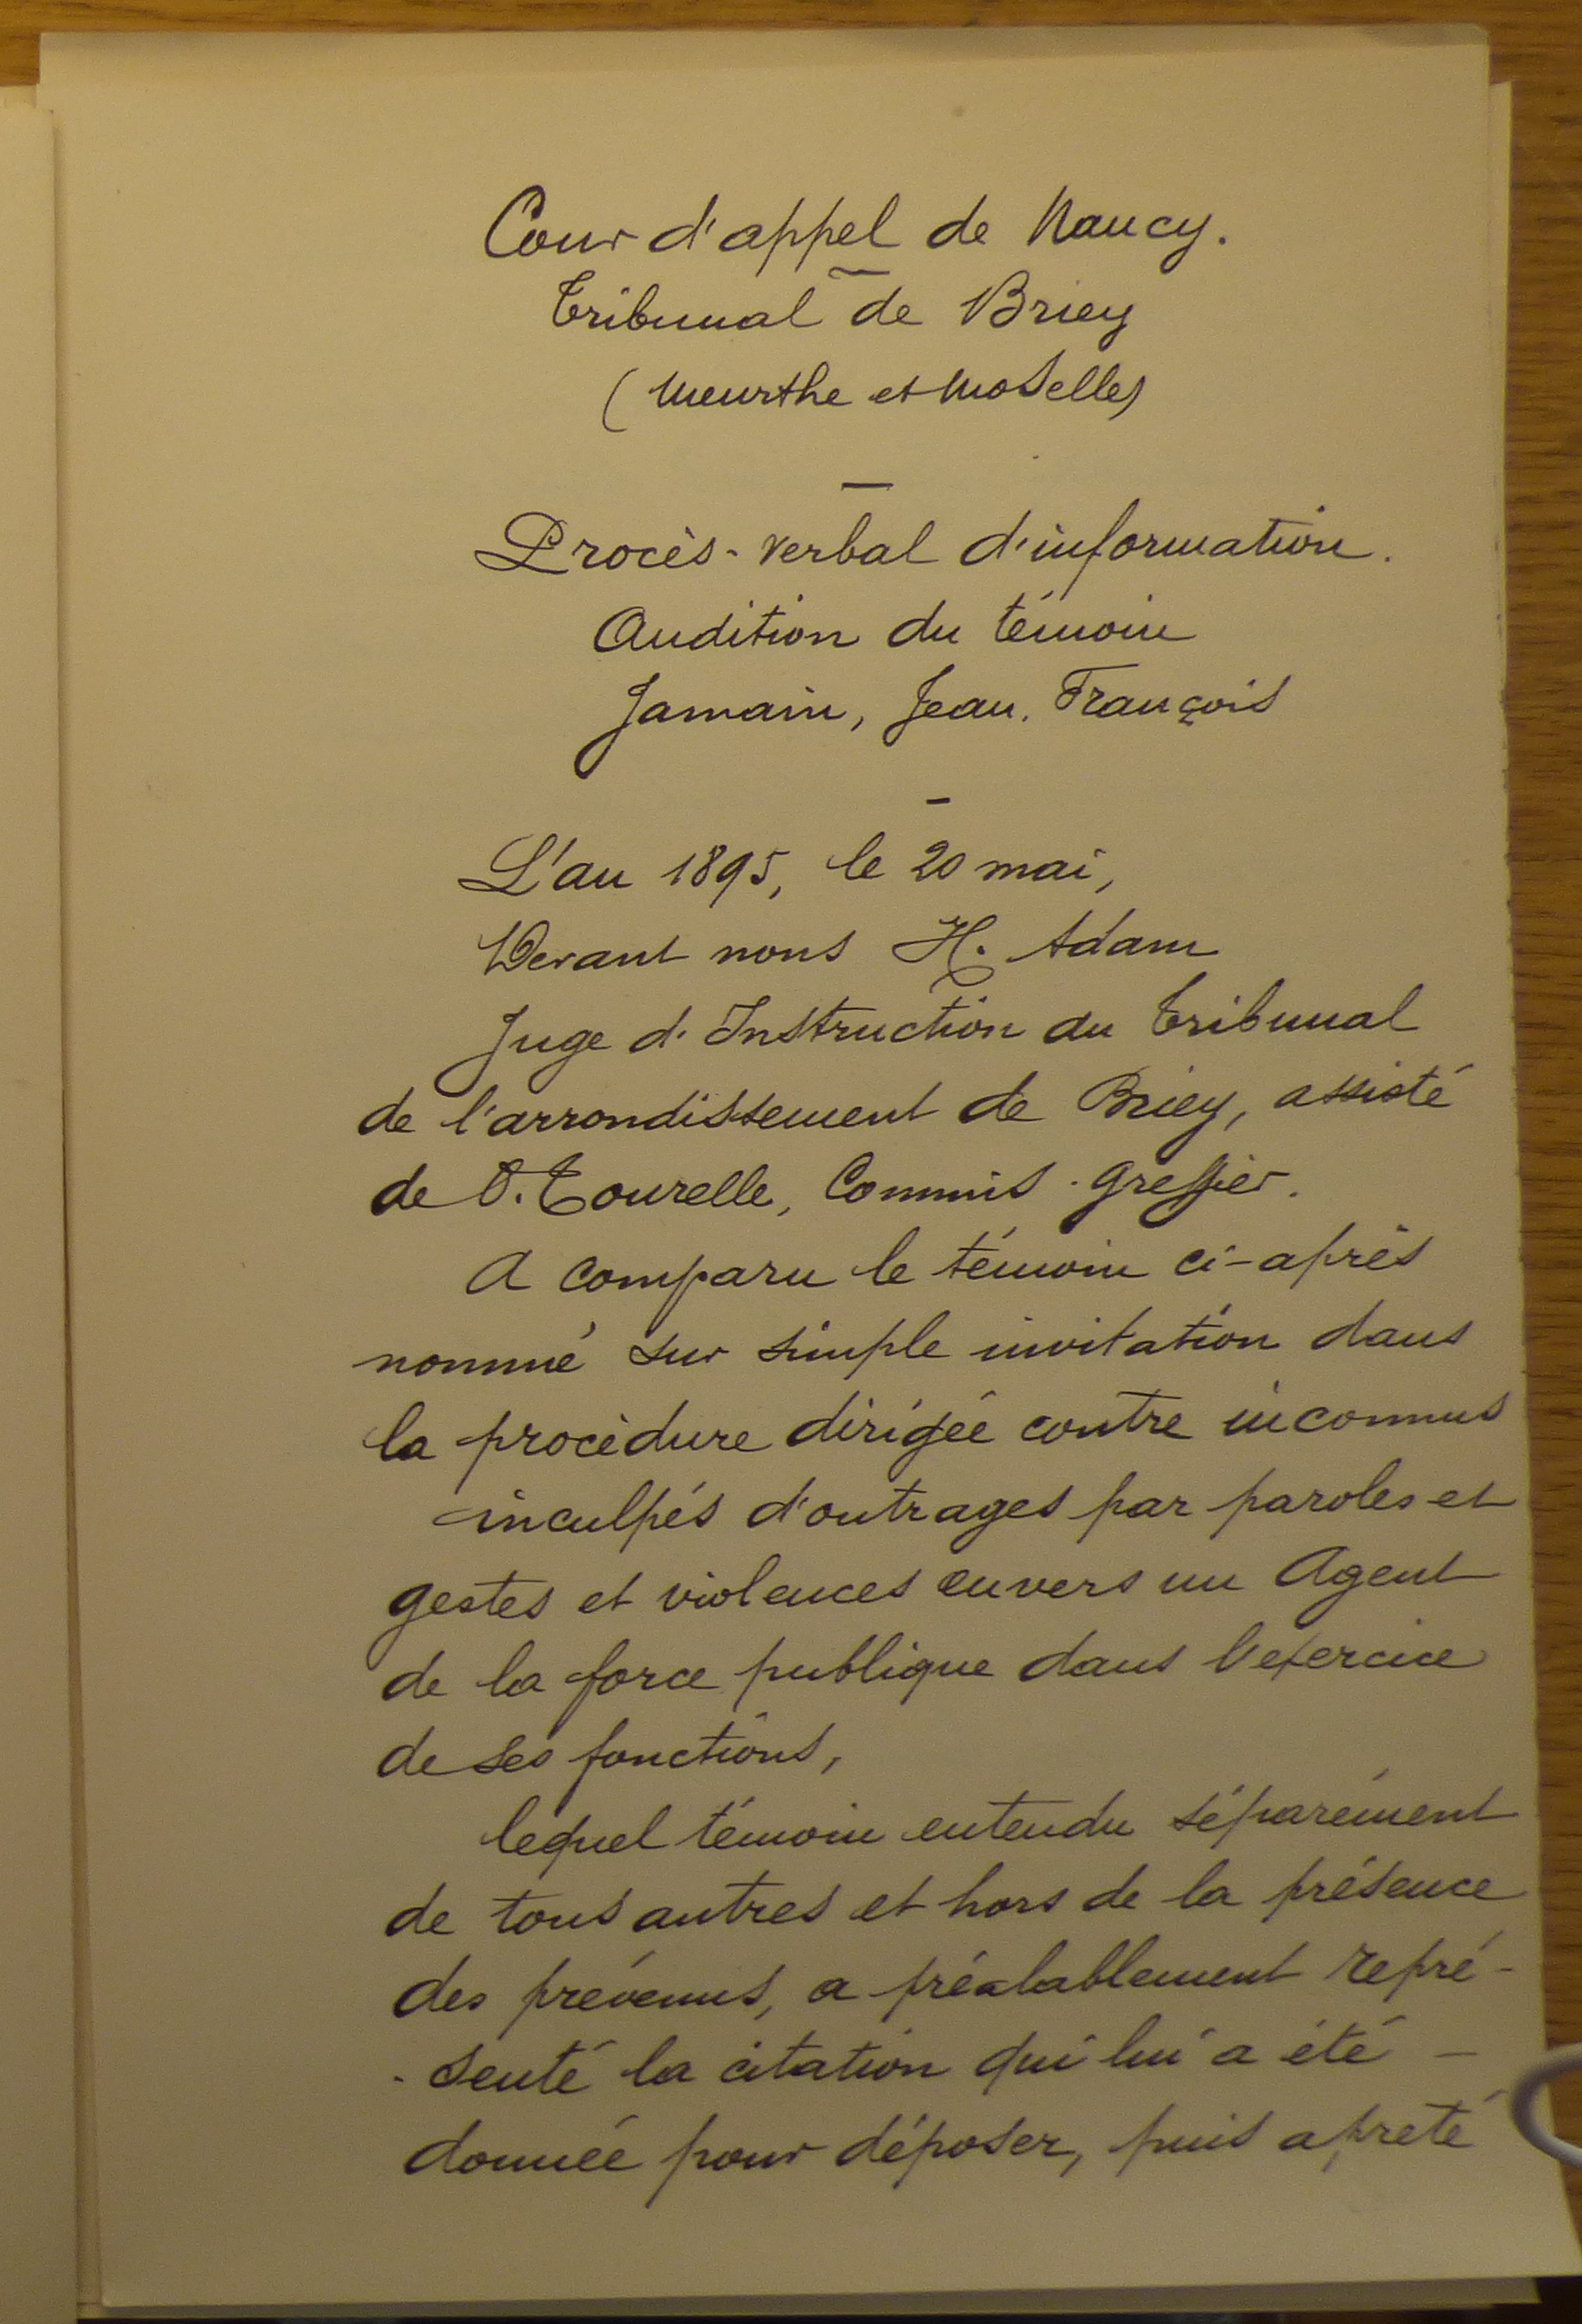 Cour d'appel de Nancy.
Tribunal de Briey
(Meurthe et Moselle)
—
Procès-verbal d'information.
Audition du témoin
Jamain, Jean. François
—
L'an 1895, le 20 mai,
Devant nous H. Adam
Juge d'Instruction du Tribunal
de l'arrondissement de Briey, assisté
de O. Tourelle, Commis-greffier.
A comparu le témoin ci-après
nommé sur simple invitation dans
la procédure dirigée contre inconnus
inculpés d'outrages par paroles et
gestes et violences envers un Agent
de la force publique dans l'exercice
de ses fonctions,
lequel témoin entendu séparément
de tous autres et hors de la présence
des prévenus, a préalablement repré-
-senté la citation qui lui a été —
donnée pour déposer, puis a preté